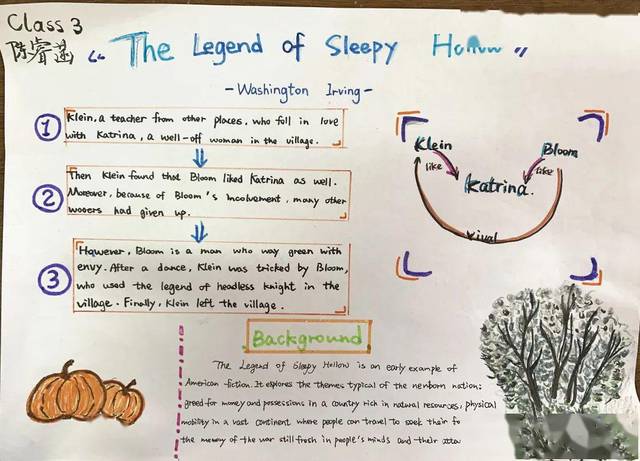 Class 3
陈睿菡
"The Legend of Sleepy Hollow"
-Washington Irving-
1
Klein, a teacher from other places, who fell in love
with Katrina, a well-off woman in the village.
2
Then Klein found that Bloom liked Katrina as well.
Moreover, because of Bloom's incolvement, many other
wooers had given up.
3
However, Bloom is a man who way green with
envy. After a dance, Klein was tricked by Bloom,
who used the legend of headless knight in the
village. Finally, Klein left the village.
Klein
Bloom
like
like
Katrina.
rival
Background
The Legend of Sleepy Hollow is an early example of
American fiction. It explores the themes typical of the newborn nation:
greed for money and possessions in a country rich in natural resources, physical
mobility in a vast continent where people can travel to seek their fo
the memory of the war still fresh in people's minds and their